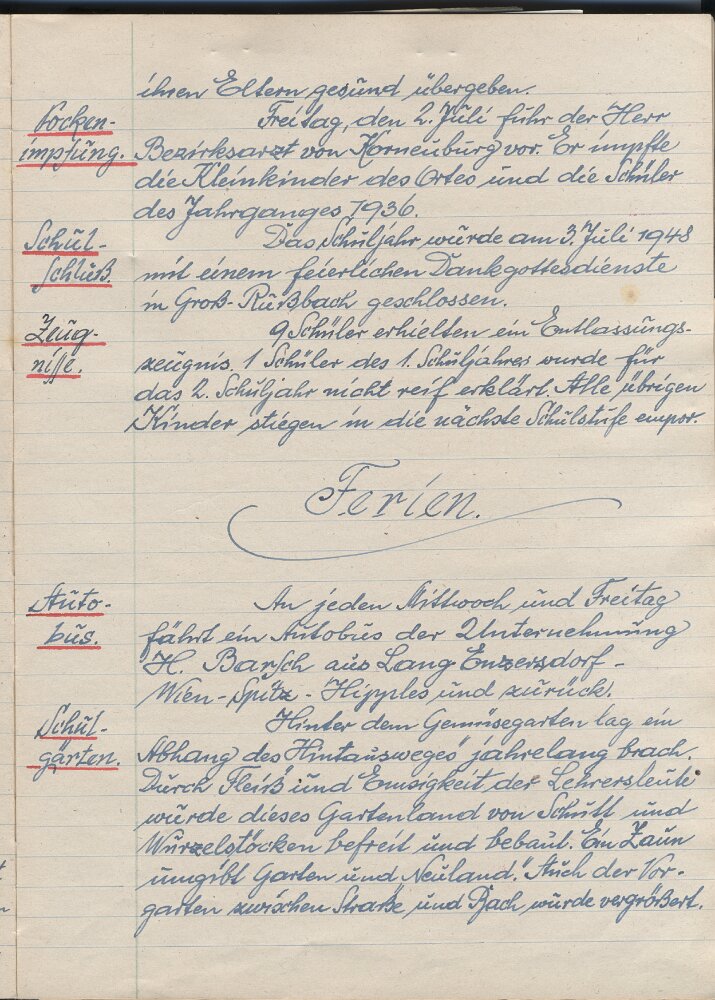 ihren Eltern gesund übergeben.
Pocken-
impfung.
Freitag, den 2. Juli fuhr der Herr
Bezirksarzt von Korneuburg vor. Er impfte
die Kleinkinder des Ortes und die Schüler
des Jahrganges 1936.
Schul-
schluß.
Das Schuljahr wurde am 3. Juli 1948
mit einem feierlichen Dankgottesdienste
in Groß-Rußbach geschlossen.
Zeug-
nisse.
9 Schüler erhielten ein Entlassungs-
zeugnis. 1 Schüler des 1. Schuljahres wurde für
das 2. Schuljahr nicht reif erklärt. Alle übrigen
Kinder stiegen in die nächste Schulstufe empor.
Ferien.
Auto-
bus.
An jeden Mittwoch und Freitag
fährt ein Autobus der Unternehmung
H. Barsch aus Lang Enzersdorf -
Wien - Spitz - Hipples und zurück.
Schul-
gärten.
Hinter dem Gemüsegarten lag ein
Abhang des „Hintausweges" jahrelang brach.
Durch Fleiß und Emsigkeit der Lehrersleute
wurde dieses Gartenland von Schutt und
Wurzelstöcken befreit und bebaut. Ein Zaun
umgibt Garten und „Neuland." Auch der Vor-
garten zwischen Straße und Bach wurde vergrößert.